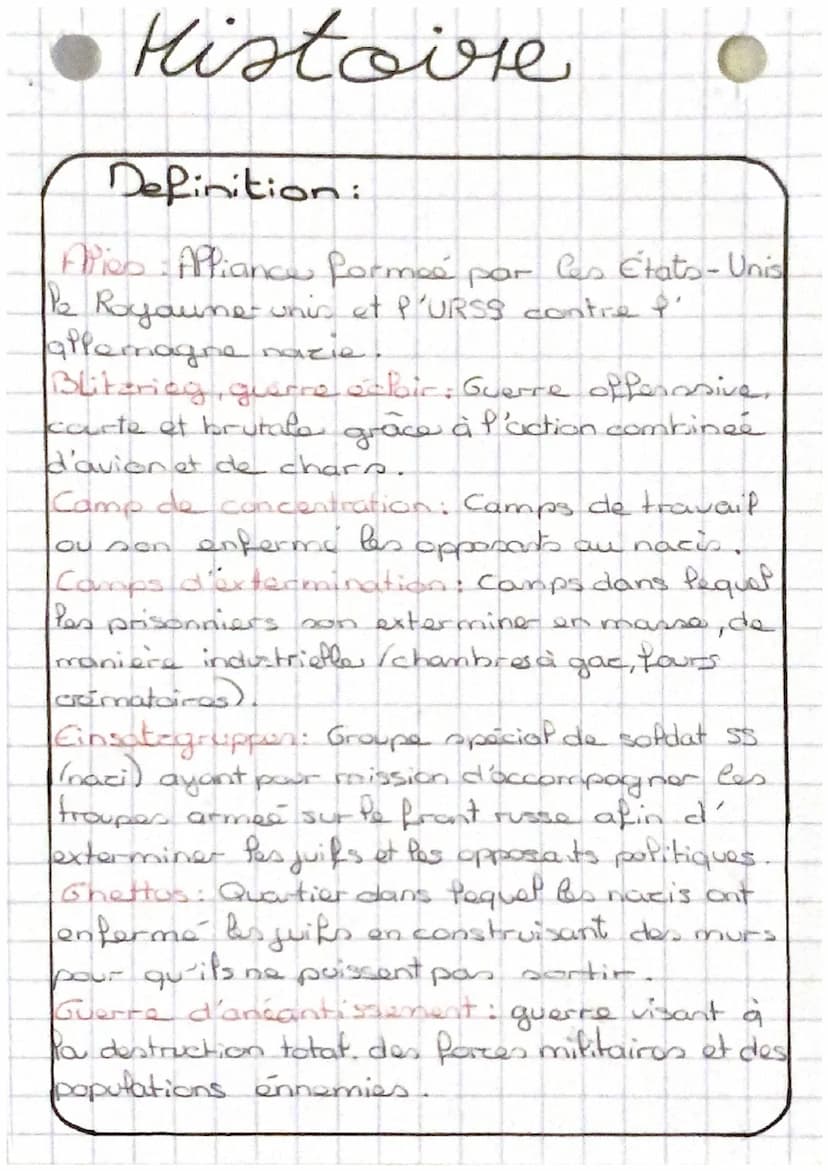 Histoire
Definition:
Aliés : Alliance formeé par les États-Unis
le Royaume-unis et l'URSS contre l'
allemagne nazie.
Blitzrieg, guerre éclair : Guerre offenssive,
courte et brutale grâce à l'action combineé
d'avion et de chars.
Camp de concentration : Camps de travail
ou son enfermé les opposants au nazis.
Camps d'extermination : Camps dans lequel
les prisonniers son exterminer en masse, de
manière industrielle (chambres à gaz, fours
crématoires).
Einsatzgruppen : Groupe spécial de soldat SS
(nazi) ayant pour mission d'accompagner les
troupes armeé sur le front russe afin d'
exterminer les juifs et les opposants politiques.
Ghettos : Quartier dans lequel les nazis ont
enfermé les juifs en construisant des murs
pour qu'ils ne puissent pas sortir.
Guerre d'anéantissement : guerre visant à
la destruction total des forces militaires et des
populations énnemies.